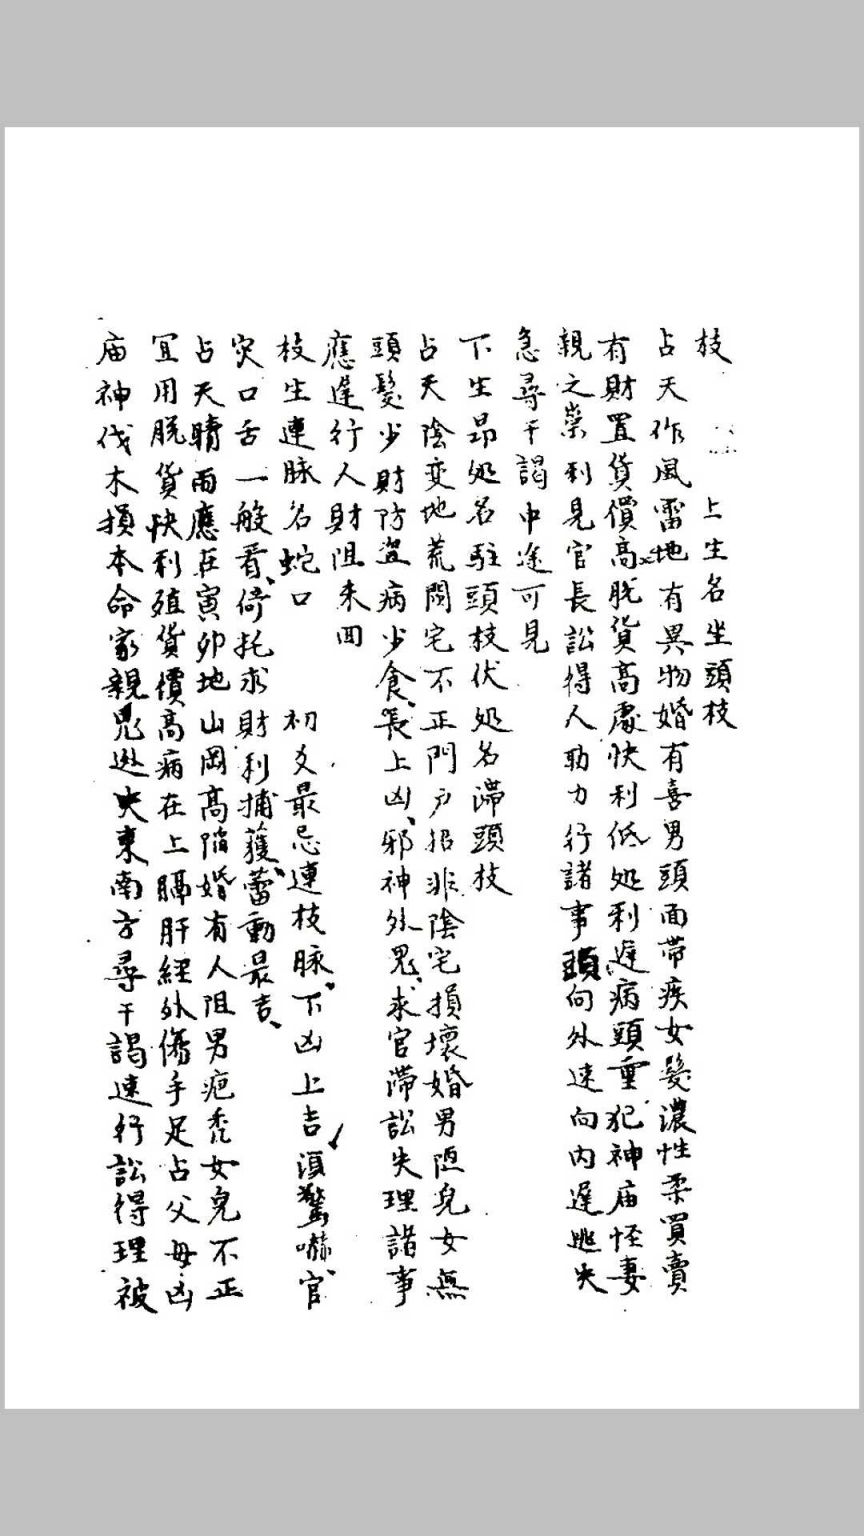 枝　上生名坐頭枝
占天作風雷地有異物婚有喜男頭面帶疾女髮濃性柔買賣
有財置貨價高脫貨高處快利低処利遲病頭重犯神庙怪妻
親之崇利見官長訟得人助力行諸事頭向外速向内遲逃失
急尋干謁中途可見
下生昂処名駐頭枝伏処名滯頭枝
占天陰变地荒閑宅不正門户招非陰宅損壞婚男陋兒女無
頭髮少財防盜病少食、長上凶、邪神外鬼、求官滯訟失理諸事
應遲行人財阻未回
枝生連脉名蛇口　初爻最忌連枝脉、下凶上吉須驚嚇、官
灾口舌一般看、倚托求財利捕獲、蕾動最吉、
占天晴雨應在寅夘地山岡高陷婚有人阻男疤禿女皃不正
宜用脫貨快利殖貨價高病在上膈肝經外傷手足占父母凶
庙神伐木損本命家親鬼逃失東南方尋干謁速行訟得理被